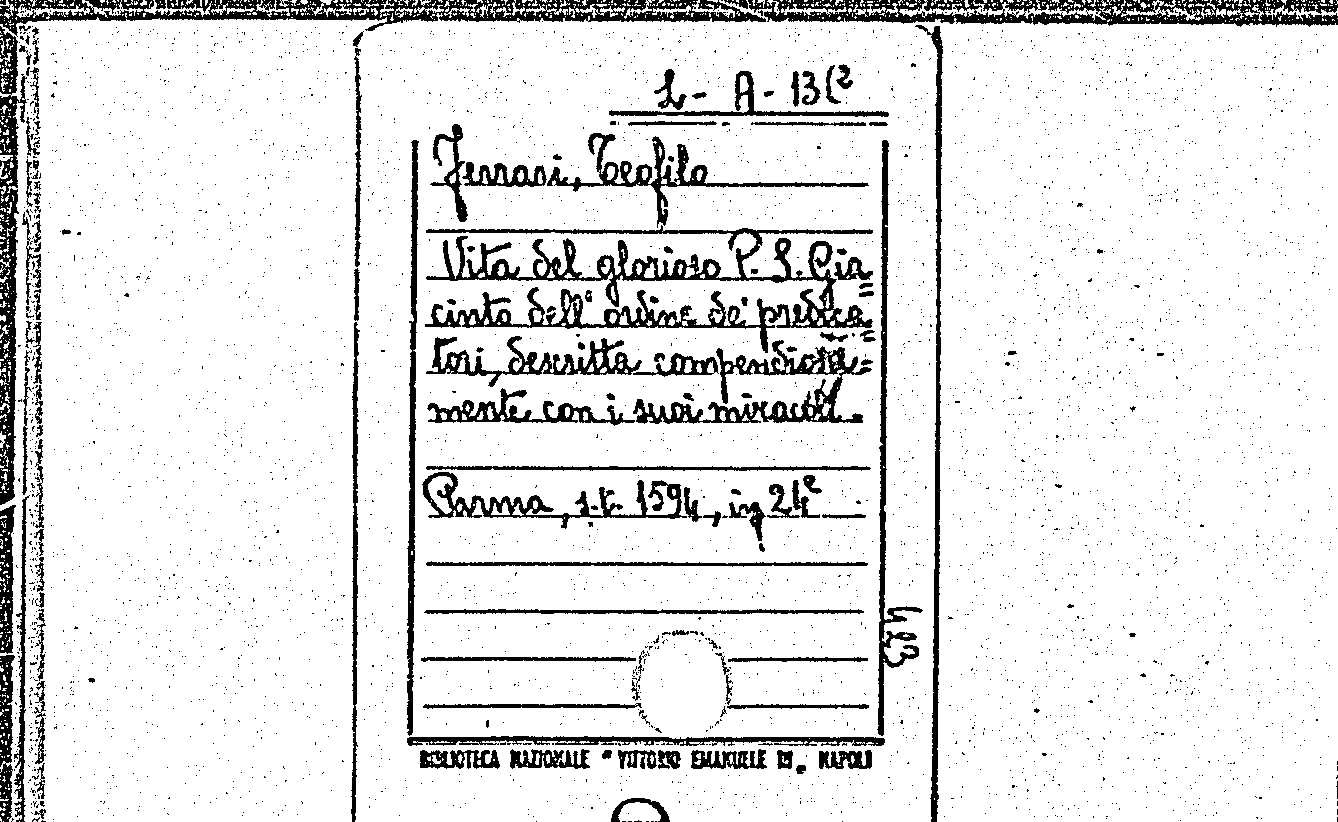 L - A - 13(2
Ferrari, Teofilo
Vita del glorioso P. S. Gia=
cinto dell' ordine de' predica=
tori, descritta compendiosa=
mente con i suoi miracoli.
Parma, s.t. 1594, in 24°
423
BIBLIOTECA NAZIONALE "VITTORIO EMANUELE III" NAPOLI